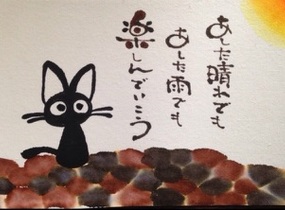 あした晴れでも
あした雨でも
楽しんでいこう